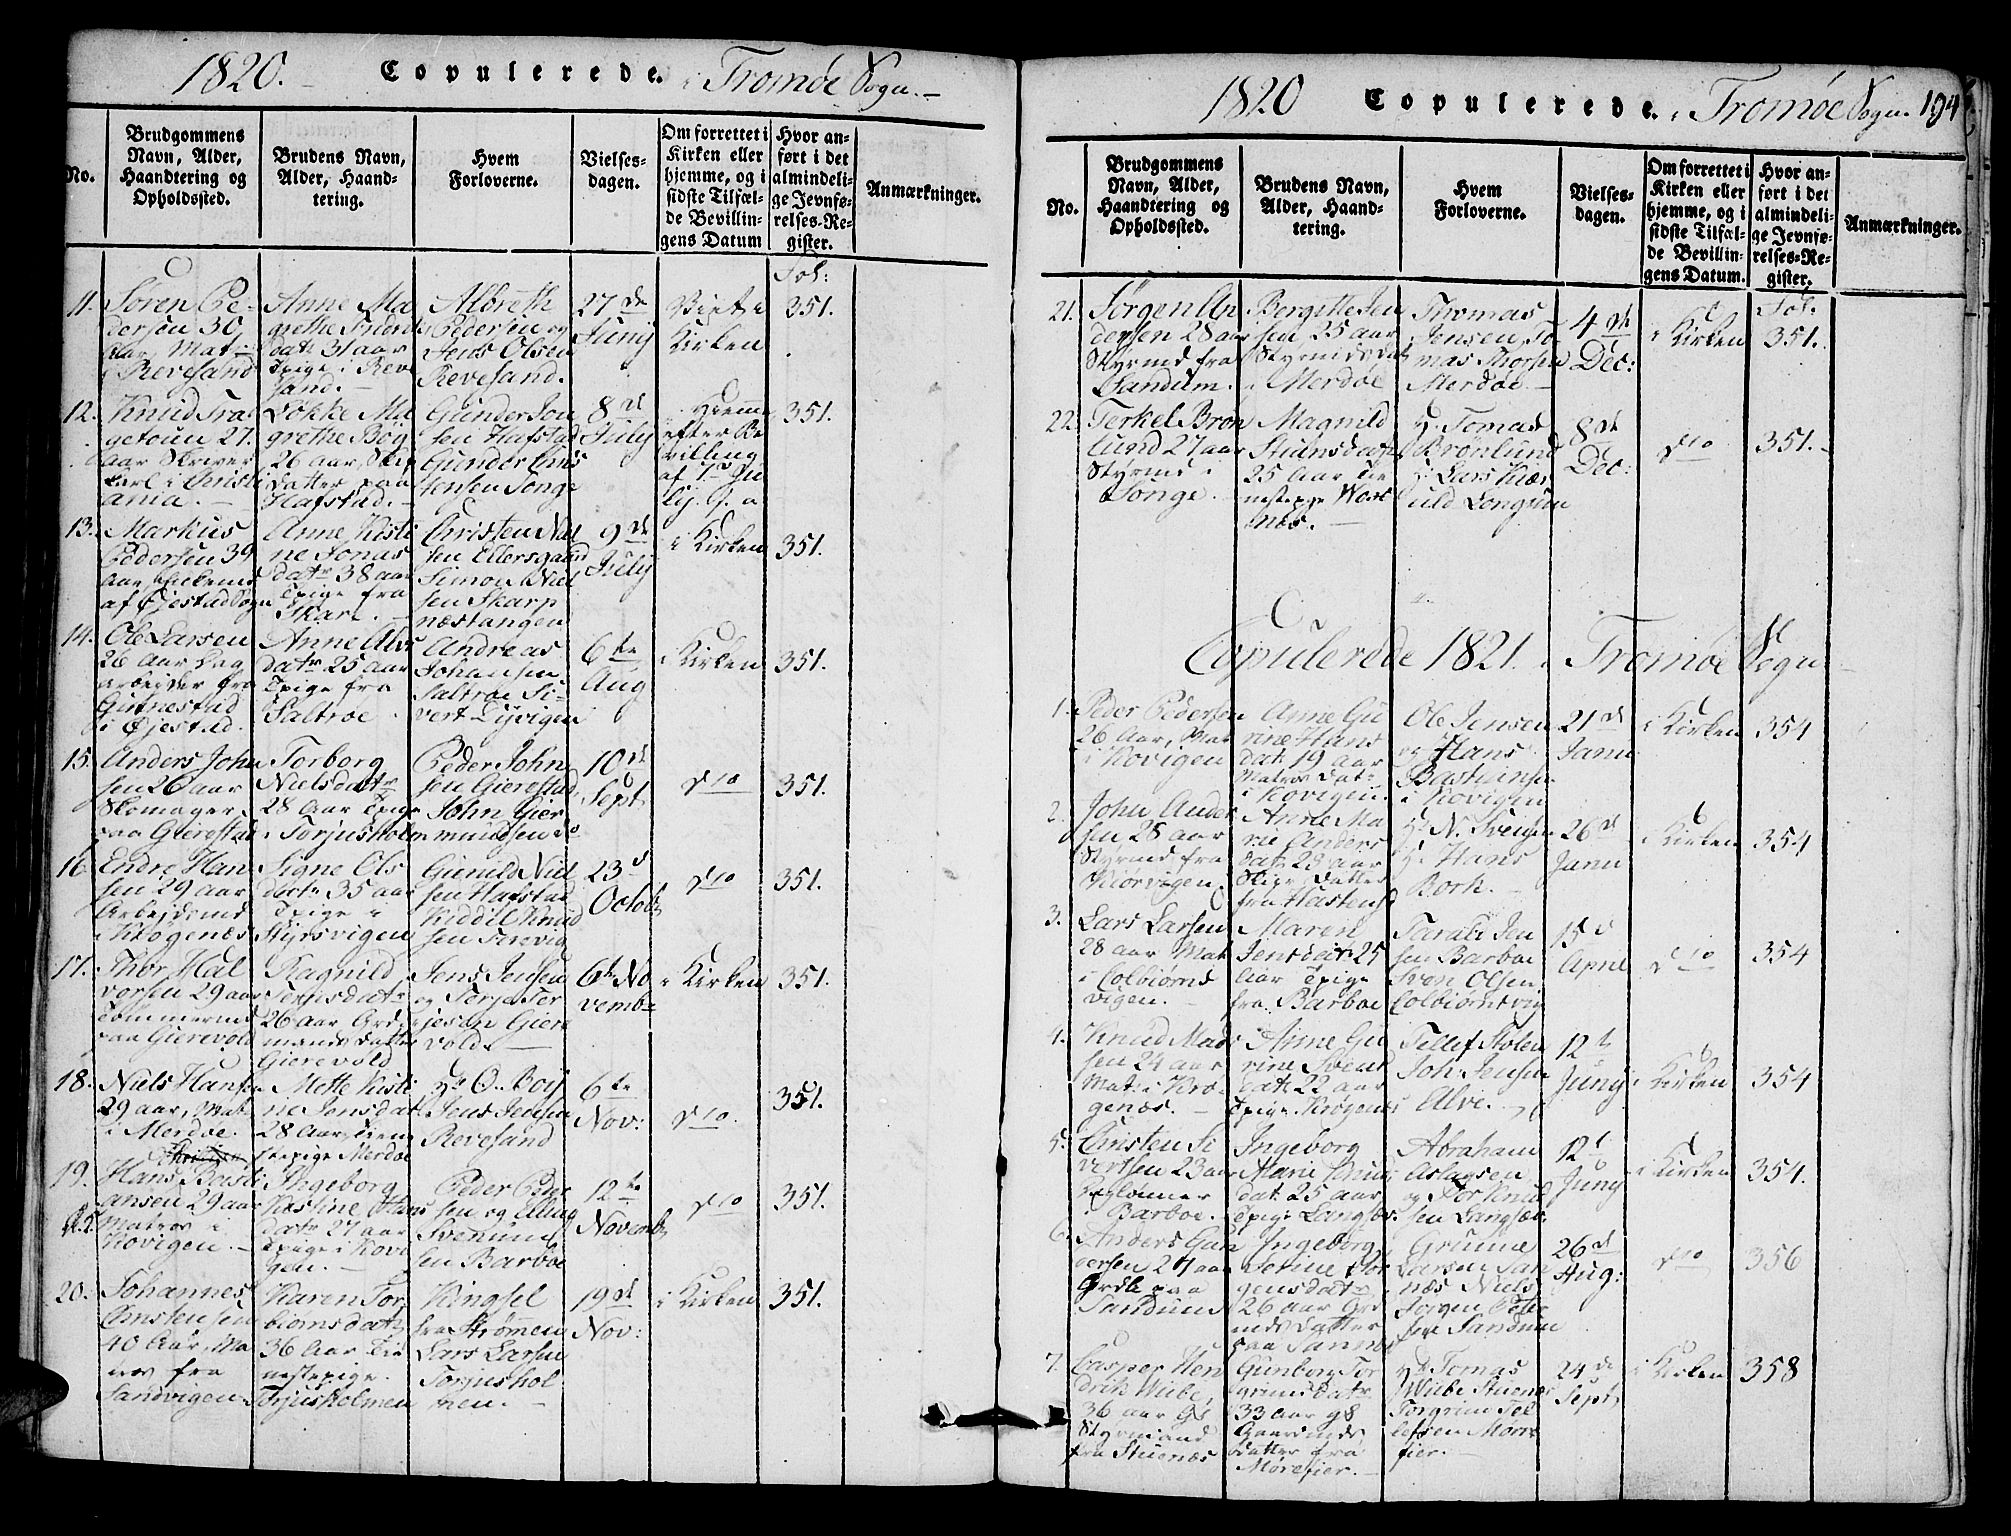 1820. Copulerede. i Tromøe Sogn.
No.
Brudgommens
Navn, Alder,
Haandtering og
Opholdssted.
Brudens Navn,
Alder, Haand-
tering.
Hvem
Forloverne.
Vielses-
dagen.
Om forrettet i
Kirken eller
hjemme, og i
sidste Tilfæl-
de Bevillin-
gens Datum
Hvor an-
ført i det
almindeli-
ge Jevnfø-
relses-Re-
gister.
Anmærkninger.
Fol:
11. Søren Pe-
dersen 30
Aar, Mat:
i Revesand
Anne Ma
grethe
datr 31 aar
Pige i Reve
sand.
Albreth
Pedersen og
Jens Olsen
Revesand.
27de
Junij
Viet i
Kirken
351.
12. Knud Tra
getoun 27.
aar Skriver
karl i Christi
ania.
Løkke Ma
grethe Böy
26 aar, Skip
datter paa
Hafstad.
Gunder Jen
sen Hafstad
Gunder Chris
tensen Songe
8de
July
Hiemme
efter Be
villing
af 7de Ju
lij
351.
13. Markus
Pedersen 39
aar Enkemd
af Øjestad Sogn
Anne Kisti
ne Jonas
datr 38 aar
Pige fra
Skare.
Christen Niel
sen Ellersgaard
Simon Niel
sen Skarp
næstangen
9de
July
i Kirken
351.
14. Ole Larsen
26 Aar Dag
arbejder fra
i Øjestad.
Anne Alvs
datr 25 aar
Pige fra
Saltrøe
Andreas
Johansen
Saltrøe Si-
vert Dijvigen
6te
Aug
i Kirken
351.
15. Anders John
sen 26 aar
Skomager
paa Gierestad
Torborg
Nielsdatr
28 Aar Pige
i Torjusholm
Peder John
sen Gierestad
John Gier
mundsen do
10de
Sept
do
351.
16. Endre Han
sen 29 aar
Arbejdsmd
i Klogenæs
Signe Ols
datr 35 aar
Pige i
Styrsvigen
Gunuld Niel
sen Hafstad
Kiddil Knud
sen Terevig
23d
Octob
do
351.
17. Thor Hal
vorsen 29 aar
Tommermd
paa Gierevold
Ragnild
Terjusdatr
26 Aar Grd
mands datter
Gierevold
Jens Jensen
og Terje Ter
jesen Giere
vold.
6te No
vembr
i Kirken
351.
18. Niels Hansen
29 aar, Mat
i Merdøe.
Mette Kisti
ne Jensdatr
28 Aar, Tiene
stepige Merdøe
Hr O. Boij
Jens Jensen
Revesand
6te
Nov:
do
351.
19. Hans Basti
ansen 29 aar
Matros i
Kovigen.
Ingeborg
Kistine Hans
datr 27 aar
Pige i Kovi
gen.
Peder Peder
sen og Elling
sen Barboe
12te
Novemb
do
351.
20. Johannes
Christensen
40 aar, Ma
tros fra
Sandvigen
Karen Tor
biørnsdatr
36 Aar Tie
nestepige
Torjusholmen
Kingsel
fra Strømmen
Lars Larsen
Torjushol
men.
19de
Nov:
i Kirken
351.
1820 Copulerede. i Tromøe Sogn. 194
No.
Brudgommens
Navn, Alder,
Haandtering og
Opholdssted.
Brudens Navn,
Alder, Haand-
tering.
Hvem
Forloverne.
Vielses-
dagen.
Om forrettet i
Kirken eller
hjemme, og i
sidste Tilfæl-
de Bevillin-
gens Datum.
Hvor an-
ført i det
almindeli-
ge Jevnfø-
relses-Re-
gister.
Anmærkninger.
Fol.
21. Jørgen An
dersen 28 aar
Styrmd fra
Sandum.
Bergitte Jen
sen 25 aar
Styrmds dat
i Merdøe
Thomas
Jensen, To
mas Thorsen
Merdøe.
4de
Dec:
i Kirken
351.
22. Terkel Brøn
lund 27 aar
Styrmd i
Songe.
Magnild
Stiansdatr
25 Aar Tie
nestepige Wort
næs.
Hr Tomas
Brønlund
Hr Lars Kiær
uld Longsun
8de
Dec:
do
351.
Copulerede 1821. i Tromøe Sogn
1. Peder Pedersen
26 Aar, Mat
i Kovigen
Anne Gu
rine Hans
datr 19 aar
Matros Datr
i Kovigen.
Ole Jensen
og Hans
Bastiansen
i Kovigen
21de
Janu
i Kirken
354
2. John Ander
sen 28 aar
Styrmd fra
Kiørvigen.
Anne Ma
rie Anders
datr 28 aar
Skips datter
fra Hastensd
Hr N. Svensen
Hr Hans
Bork.
26de
Janu
i Kirken
354
3. Lars Larsen
28 aar Mat
i Colbiørns
vigen.
Maren
Jensdatr 25
Aar Pige
fra Barboe
Tarald Jen
sen Barboe
Sven Olsen
Colbiørnsvig
15d
April
do
354
4. Knud Mads
sen 24 aar
Mat: i Krø
genæs.
Anne Gu
rine Svend
datr 22 aar
Pige Krøgenæs
Tellef Stolen
Joh. Jensen
Alve.
12t
Junij
i Kirken
354
5. Christen Si
vertsen 23 aar
i Barboe.
Ingeborg
Marie Knuds
datr 25 aar
Pige Langsæe
Abraham
Aslagsen
og Tor Knud
sen Langsæe
12t
Junij
i Kirken
354.
6. Anders Gun
dersen 24 aar
Grdbr paa
Sandum
Ingeborg
Serine Jør
gensdatr
26 aar Grd
mds datter
paa Sannes
Grunne
Larsen San
næs Niels
Jørgen Peter
sen Sandum
26de
Aug:
do
356
7. Casper Hen
drik Wiibe,
36 aar G
Styrmand
fra Stuenæs
Gunborg Tor
grimsdatr
33 Aar g
Gaardmds
datter fra
Mørefier.
Hr Tomas
Wiibe Stuenæs
Torgrim Tel
lefsen Møre
fier.
24de
Sept
i Kirken
358